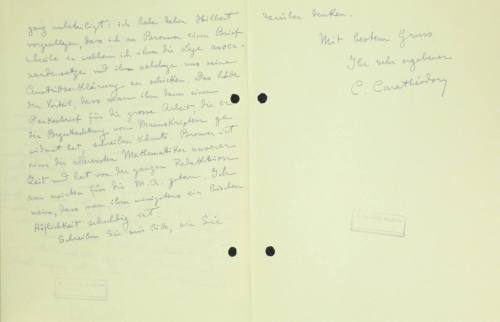 ganz unbeteiligt; ich habe daher Hilbert
vorgeschlagen, dass ich an Brouwer einen Brief
schreibe in welchem ich ihm die Lage ausei-
nandersetze und ihm nahelege uns seine
Austrittserklärung zu schicken. Das hätte
den Vorteil, dass man ihm dann einen
Dankesbrief für die grosse Arbeit, die er
der Begutachtung von Manuskripten ge-
widmet hat, schreiben könnte. Brouwer ist
einer der Mathematiker unserer
Zeit und hat von der ganzen Redaktion
am meisten für die M.A. getan. Ich
meine, dass man ihm wenigstens ein bischen
Höflichkeit schuldig ist.
Schreiben Sie mir bitte, wie Sie
darüber denken.
Mit bestem Gruss
Ihr sehr ergebener
C. Carathéodory